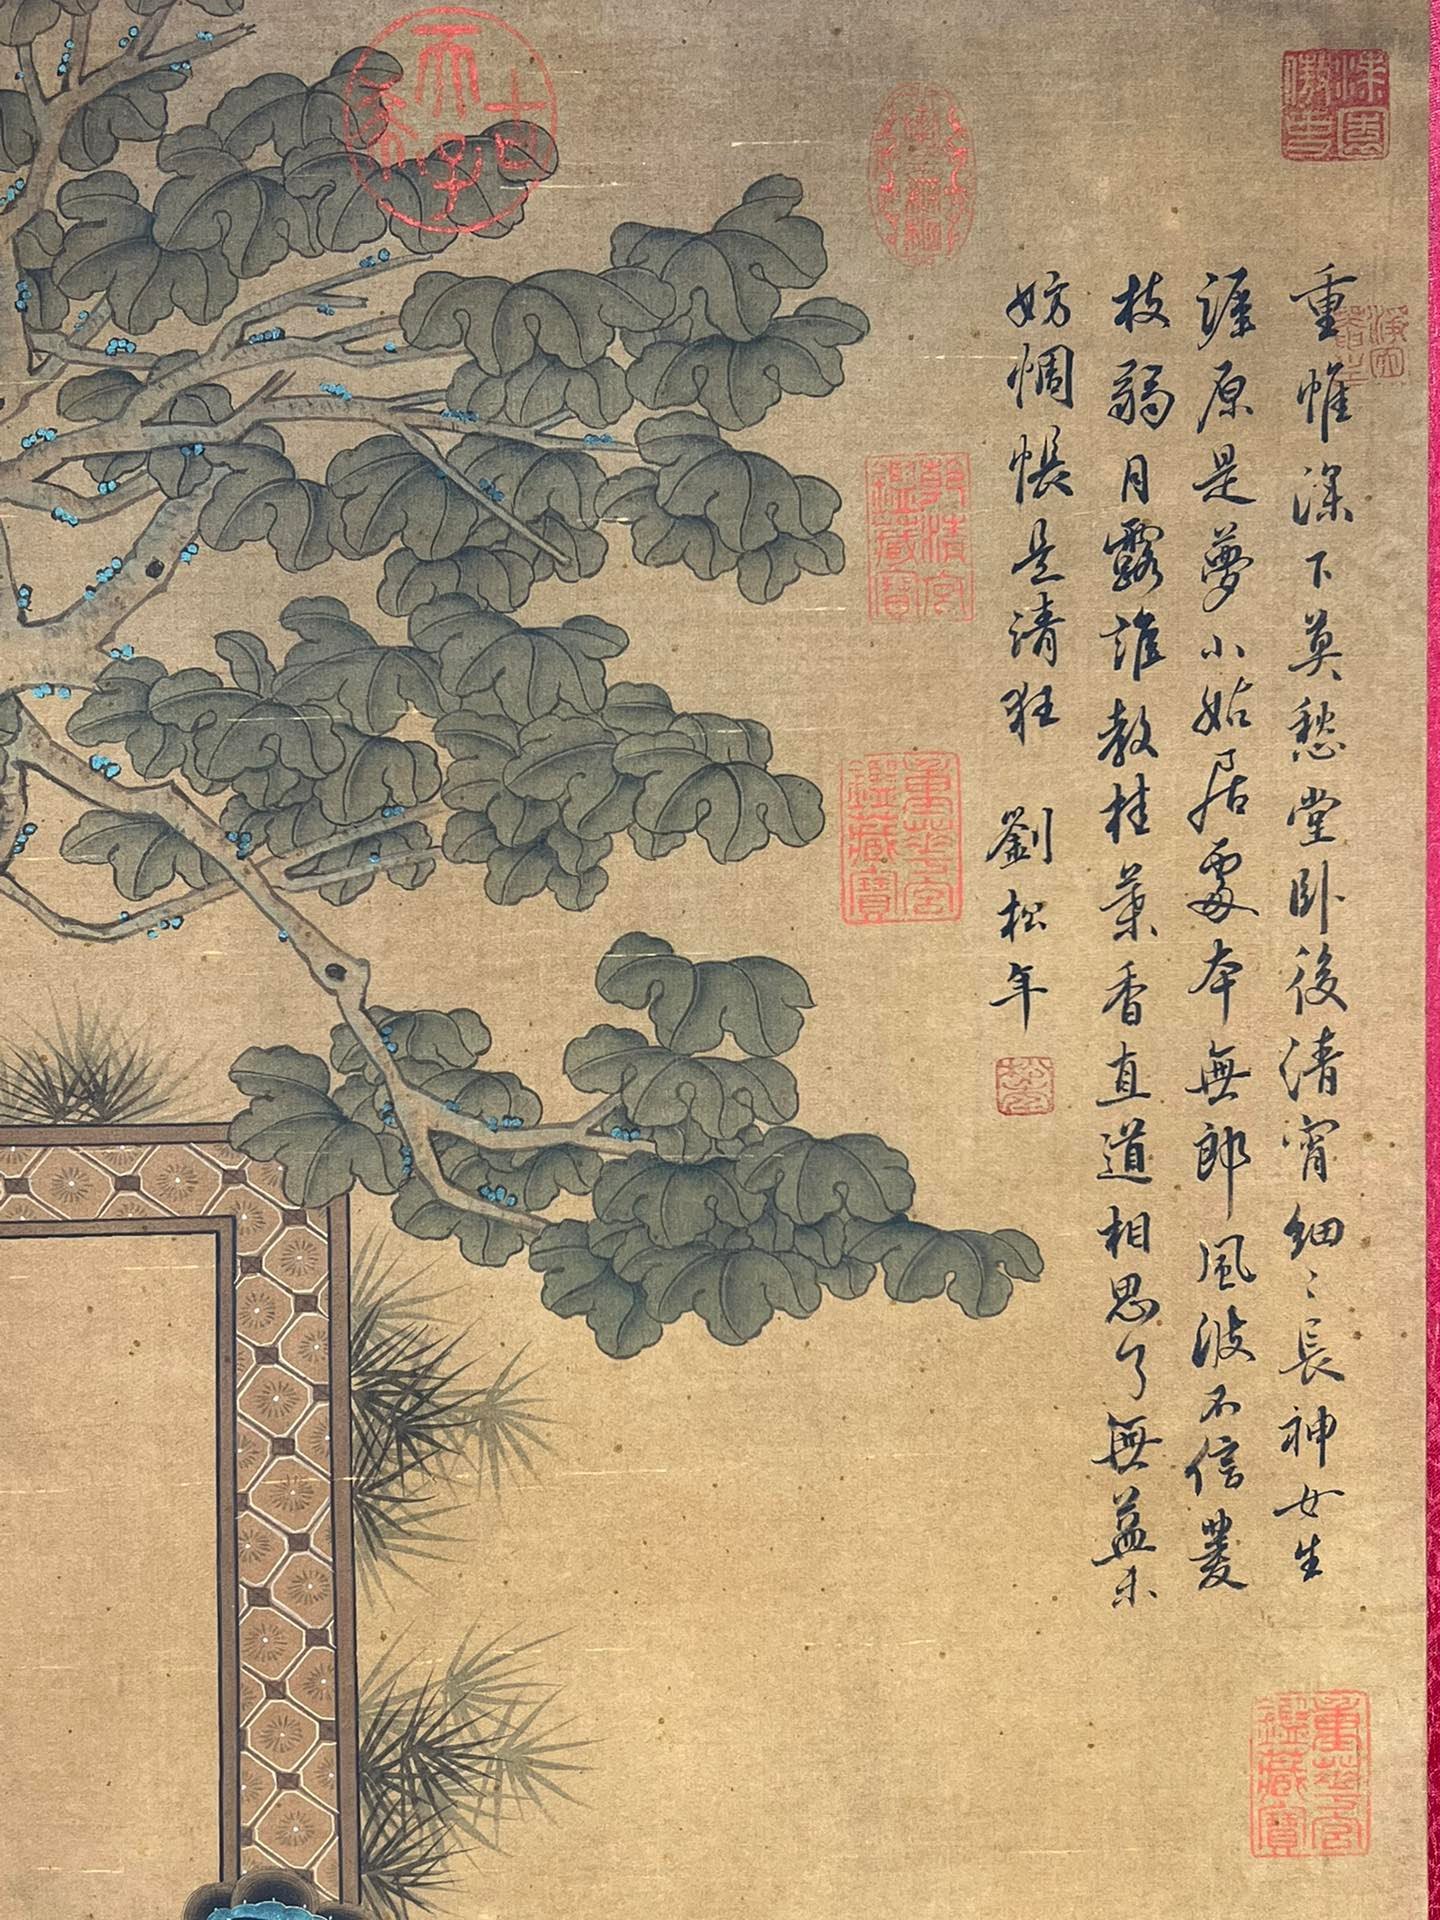 重帷深下莫愁堂卧後清宵細〻長神女生
涯原是夢小姑居處本無郎風波不信菱
枝弱月露誰教桂葉香直道相思了無益未
妨惆悵是清狂 劉松年
古
天子
乾清宮
鑑藏寶
重華宮
鑑藏寶
重華宮
鑑藏寶